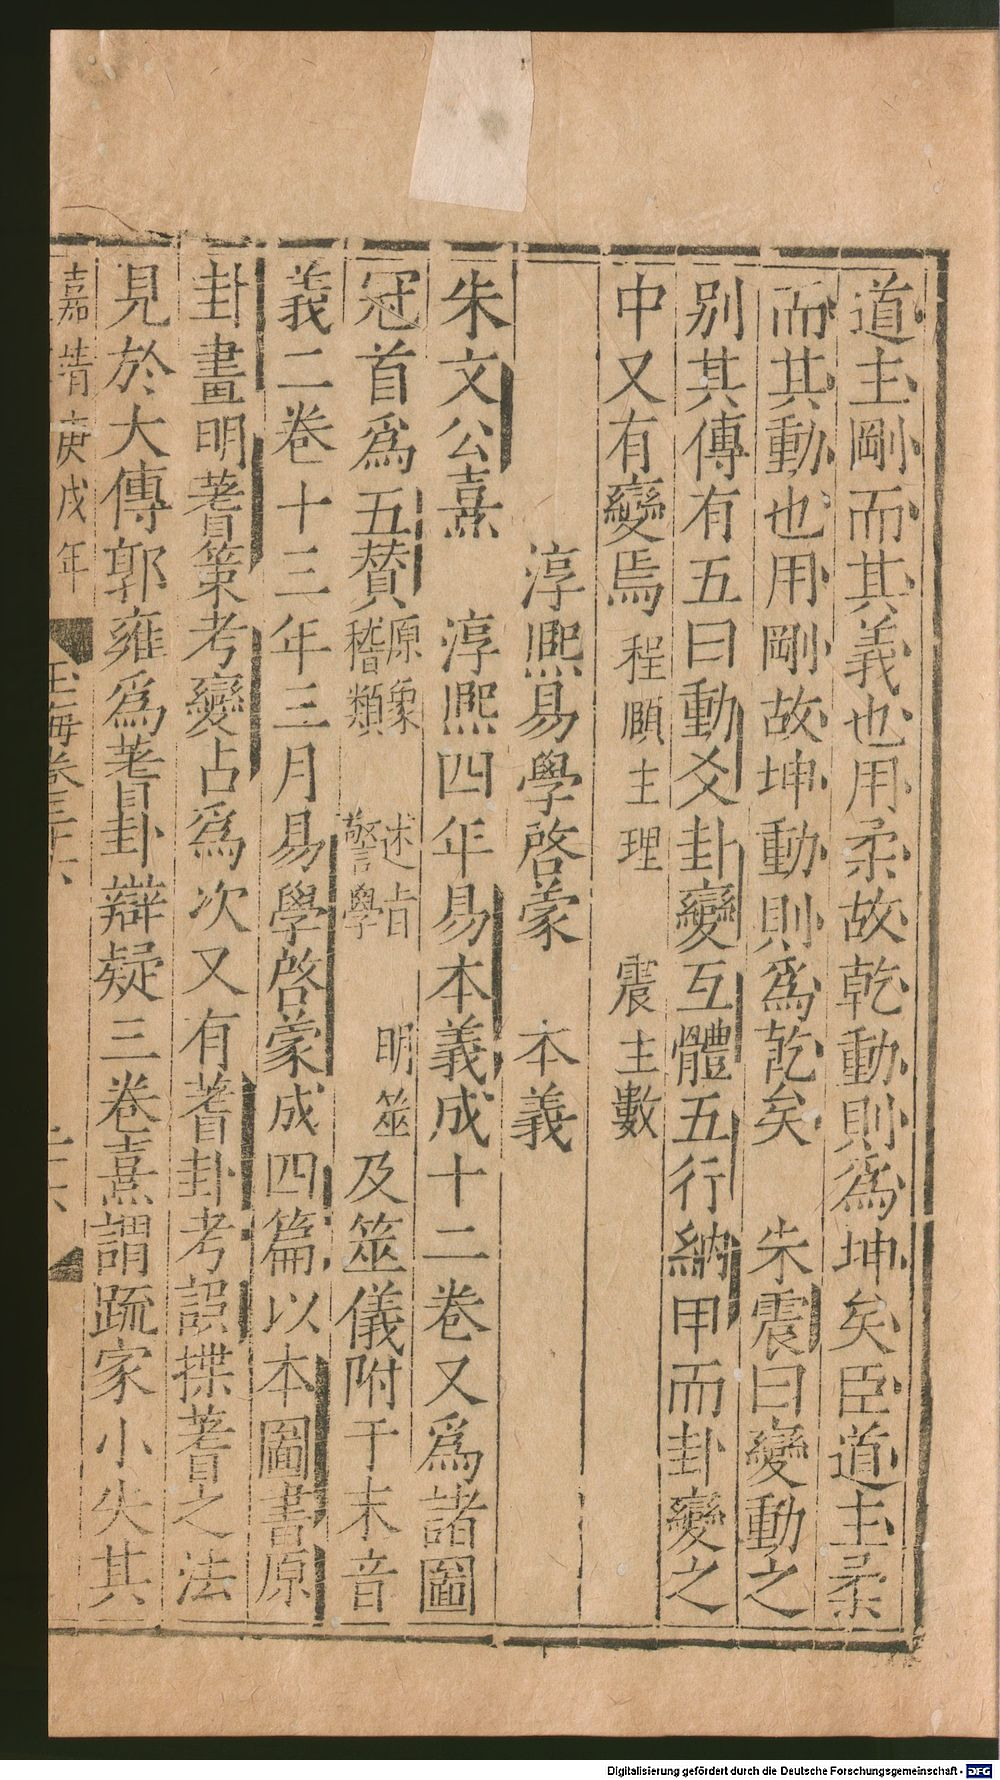 道主剛而其義也用柔故乾動則為坤矣臣道主柔
而其動也用剛故坤動則為乾矣　朱震曰變動之
别其傳有五曰動爻卦變互體五行納甲而卦變之
中又有變焉　程頤主理　震主數
淳熈易學啓蒙　本義
朱文公熹　淳熈四年易本義成十二卷又爲諸圖
冠首爲五賛原象稽類　述旨警學　明筮　及筮儀附于末音
義二卷十三年三月易學啓蒙成四篇以本圖書原
卦畫明蓍策考變占爲次又有蓍卦考誤揲蓍之法
見於大傳郭雍爲蓍卦辯疑三卷熹謂䟽家小失其
嘉靖庚戌年　玉海卷三十六
Digitalisierung gefördert durch die Deutsche Forschungsgemeinschaft - DFG